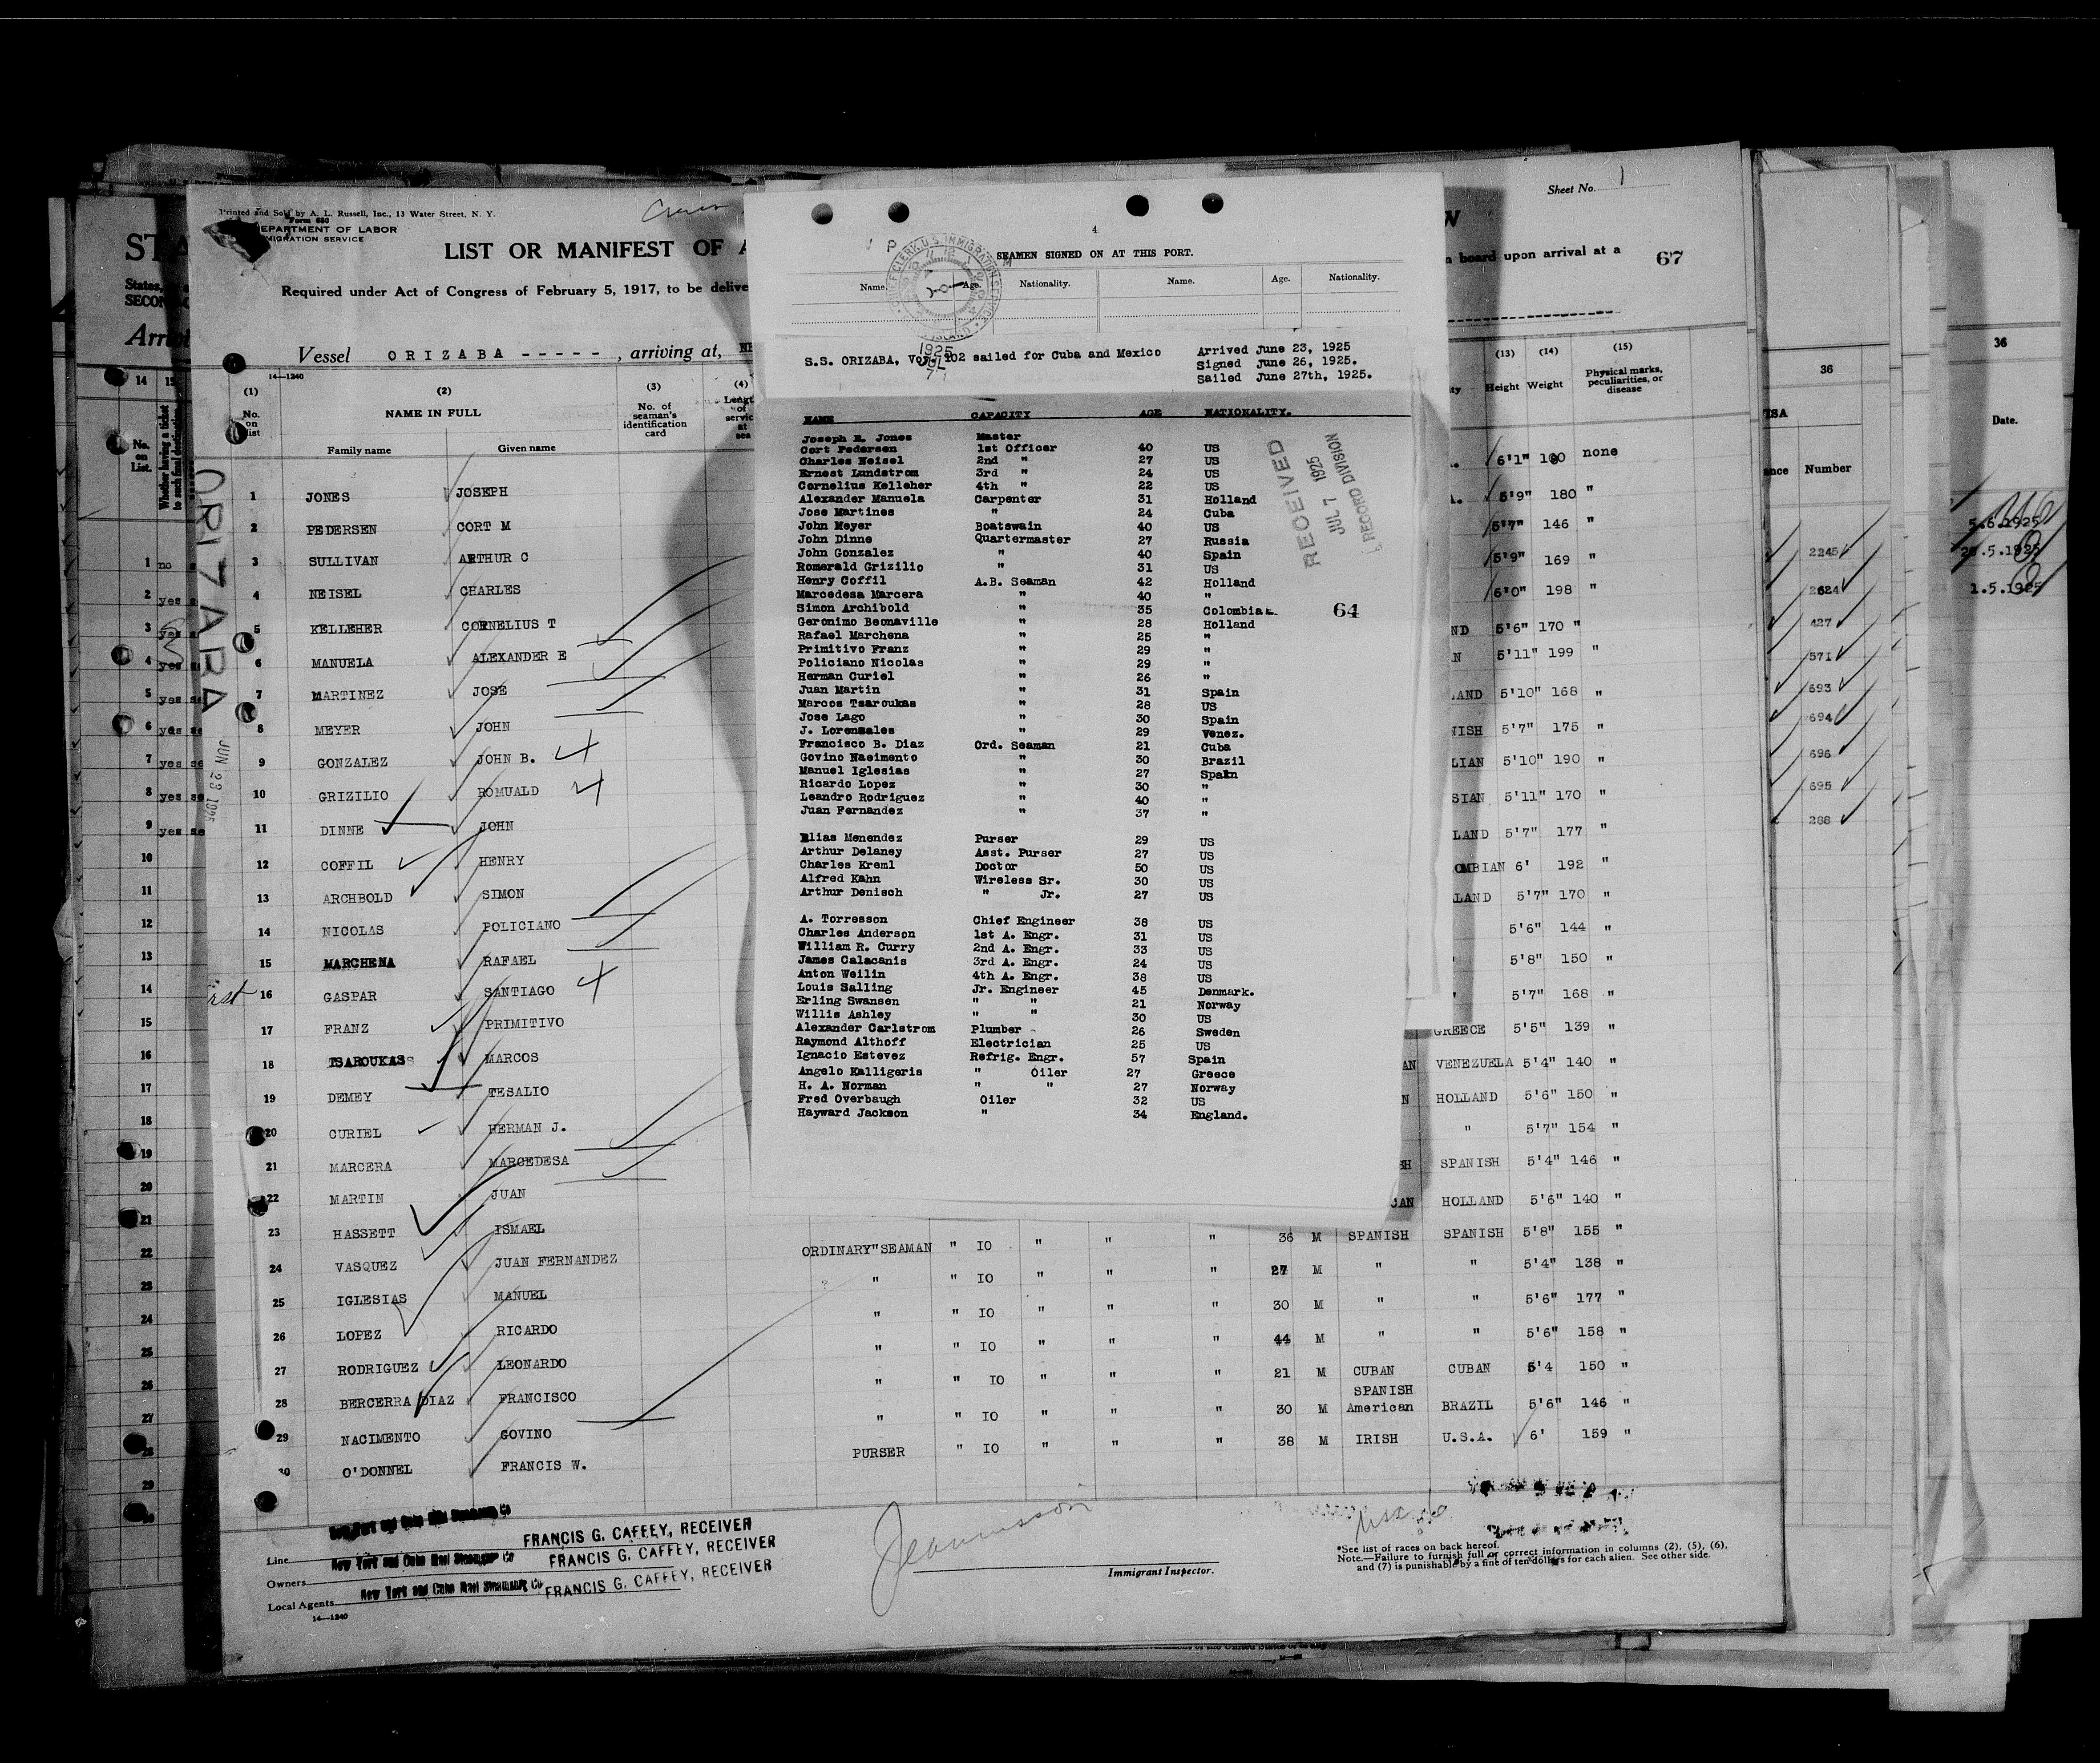 Sheet No. 1
Printed and Sold by A. L. Russell, Inc., 13 Water Street, N. Y.
Form 680
DEPARTMENT OF LABOR
IMMIGRATION SERVICE
LIST OR MANIFEST OF A
Required under Act of Congress of February 5, 1917, to be delive
n board upon arrival at a
67
Vessel ORIZABA - - - - - , arriving at,
14—1240
(1) (2) (3) (4)
No. on list
NAME IN FULL
No. of seaman's identification card
Family name Given name
ORIZABA
JUN 23 1925
1 JONES JOSEPH
2 PEDERSEN CORT M
3 SULLIVAN ARTHUR C
4 NEISEL CHARLES
5 KELLEHER CORNELIUS T
6 MANUELA ALEXANDER E
7 MARTINEZ JOSE
8 MEYER JOHN
9 GONZALEZ JOHN B.
10 GRIZILIO ROMUALD
11 DINNE JOHN
12 COFFIL HENRY
13 ARCHBOLD SIMON
14 NICOLAS POLICIANO
15 MARCHENA RAFAEL
16 GASPAR SANTIAGO
17 FRANZ PRIMITIVO
18 TSAROUKAS MARCOS
19 DEMEY TESALIO
20 CURIEL HERMAN J.
21 MARCERA MARCEDESA
22 MARTIN JUAN
23 HASSETT ISMAEL
24 VASQUEZ JUAN FERNANDEZ
25 IGLESIAS MANUEL
26 LOPEZ RICARDO
27 RODRIGUEZ LEONARDO
28 BERCERRA DIAZ FRANCISCO
29 NACIMENTO GOVINO
30 O'DONNEL FRANCIS W.
4
SEAMEN SIGNED ON AT THIS PORT.
Name. Age. Nationality. Name. Age. Nationality.
1925
JUL
7
S.S. ORIZABA, Voy. 102 sailed for Cuba and Mexico
Arrived June 23, 1925
Signed June 26, 1925.
Sailed June 27th, 1925.
NAME CAPACITY AGE NATIONALITY.
Joseph E. Jones Master
Cort Pedersen 1st Officer 40 US
Charles Neisel 2nd " 27 US
Ernest Lundstrom 3rd " 24 US
Cornelius Kelleher 4th " 22 US
Alexander Manuela Carpenter 31 Holland
Jose Martines " 24 Cuba
John Meyer Boatswain 40 US
John Dinne Quartermaster 27 Russia
John Gonzalez " 40 Spain
Romerald Grizilio " 31 US
Henry Coffil A.B. Seaman 42 Holland
Marcedesa Marcera " 40 "
Simon Archibold " 35 Colombia
Geronimo Beonaville " 28 Holland
Rafael Marchena " 25 "
Primitivo Franz " 29 "
Policiano Nicolas " 29 "
Herman Curiel " 26 "
Juan Martin " 31 Spain
Marcos Tsaroukas " 28 US
Jose Lago " 30 Spain
J. Lorensales " 29 Venez.
Francisco B. Diaz Ord. Seaman 21 Cuba
Govino Naeimento " 30 Brazil
Manuel Iglesias " 27 Spain
Ricardo Lopez " 30 "
Leandro Rodriguez " 40 "
Juan Fernandez " 37 "
Elias Menendez Purser 29 US
Arthur Delaney Asst. Purser 27 US
Charles Kreml Doctor 50 US
Alfred Kahn Wireless Sr. 30 US
Arthur Denisch " Jr. 27 US
A. Torresson Chief Engineer 38 US
Charles Anderson 1st A. Engr. 31 US
William R. Curry 2nd A. Engr. 33 US
James Calacanis 3rd A. Engr. 24 US
Anton Weilin 4th A. Engr. 38 US
Louis Salling Jr. Engineer 45 Denmark.
Erling Swansen " " 21 Norway
Willis Ashley " " 30 US
Alexander Carlstrom Plumber 26 Sweden
Raymond Althoff Electrician 25 US
Ignacio Estevez Refrig. Engr. 57 Spain
Angelo Kalligeris " Oiler 27 Greece
H. A. Norman " " 27 Norway
Fred Overbaugh Oiler 32 US
Hayward Jackson " 34 England.
RECEIVED
JUL 7 1925
RECORD DIVISION
64
(13) (14) (15)
Height Weight Physical marks, peculiarities, or disease
6'1" 180 none
5'9" 180 "
5'7" 146 "
5'9" 169 "
6'0" 198 "
ND 5'6" 170 "
N 5'11" 199 "
LAND 5'10" 168 "
NISH 5'7" 175 "
LIAN 5'10" 190 "
SIAN 5'11" 170 "
LAND 5'7" 177 "
OMBIAN 6' 192 "
LAND 5'7" 170 "
5'6" 144 "
5'8" 150 "
5'7" 168 "
GREECE 5'5" 139 "
AN VENEZUELA 5'4" 140 "
N HOLLAND 5'6" 150 "
" 5'7" 154 "
SH SPANISH 5'4" 146 "
CAN HOLLAND 5'6" 140 "
ORDINARY SEAMAN " IO " " " 36 M SPANISH SPANISH 5'8" 155 "
" " IO " " " 27 M " " 5'4" 138 "
" " IO " " " 30 M " " 5'6" 177 "
" " IO " " " 44 M " " 5'6" 158 "
" " IO " " " 21 M CUBAN CUBAN 5'4 150 "
" " IO " " " 30 M SPANISH American BRAZIL 5'6" 146 "
PURSER " IO " " " 38 M IRISH U.S.A. 6' 159 "
Line New York and Cuba Mail Steamship Co FRANCIS G. CAFFEY, RECEIVER
Owners New York and Cuba Mail Steamship Co FRANCIS G. CAFFEY, RECEIVER
Local Agents New York and Cuba Mail Steamship Co FRANCIS G. CAFFEY, RECEIVER
14—1240
Immigrant Inspector.
*See list of races on back hereof.
Note.—Failure to furnish full or correct information in columns (2), (5), (6),
and (7) is punishable by a fine of ten dollars for each alien. See other side.
STA
States,
SECON
Arri
14
No. on List.
Whether having a ticket to such final destination
1 no
2 yes
3 yes
4 yes
5 yes
6 yes
7 yes
8 yes
9 yes
10
11
12
13
14
15
16
17
18
19
20
21
22
23
24
25
26
27
28
29
36
Number
2245
2624
427
571
693
694
696
695
288
36
Date.
5.6.1925
5.1925
1.5.1925